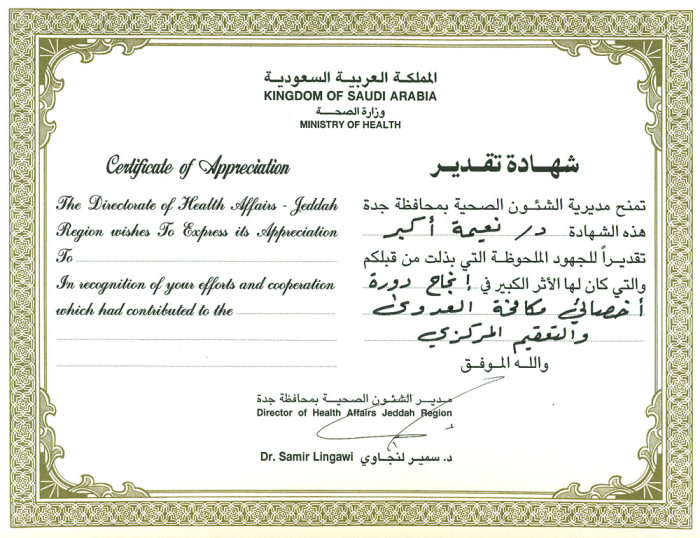 المملكة العربية السعودية
KINGDOM OF SAUDI ARABIA
وزارة الصحة
MINISTRY OF HEALTH
Certificate of Appreciation
The Directorate of Health Affairs - Jeddah
Region wishes To Express its Appreciation
To
In recognition of your efforts and cooperation
which had contributed to the
شهادة تقدير
تمنح مديرية الشئون الصحية بمحافظة جدة
هذه الشهادة د/ نعيمة أكبر
تقديراً للجهود الملحوظة التي بذلت من قبلكم
والتي كان لها الأثر الكبير في إنجاح دورة
أخصائي مكافحة العدوى
والتعقيم المركزي
والله الموفق
مدير الشئون الصحية بمحافظة جدة
Director of Health Affairs Jeddah Region
Dr. Samir Lingawi د. سمير لنجاوي